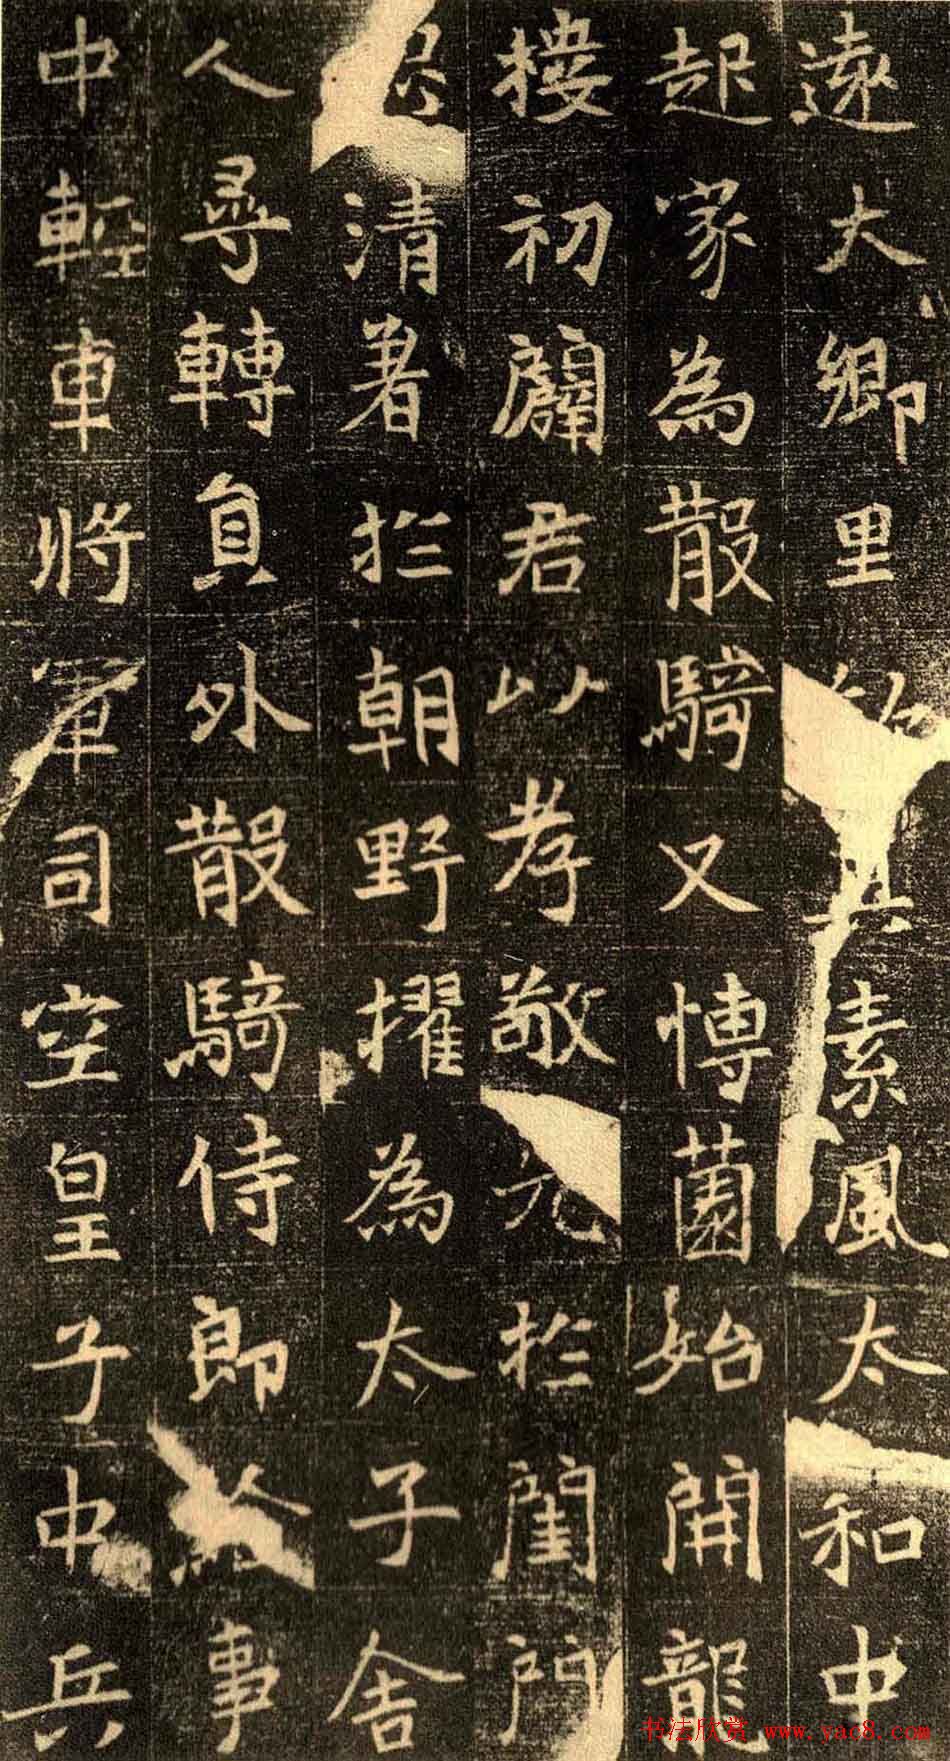 遠大鄉里其素風太和中
起家為散騎又愽薗始開龍
樓初闢君以孝敬光扵閨門
忠清著扵朝野擢為太子舍
人尋轉員外散騎侍郎給事
中輕車將軍司空皇子中兵
书法欣赏 www.yac8.com